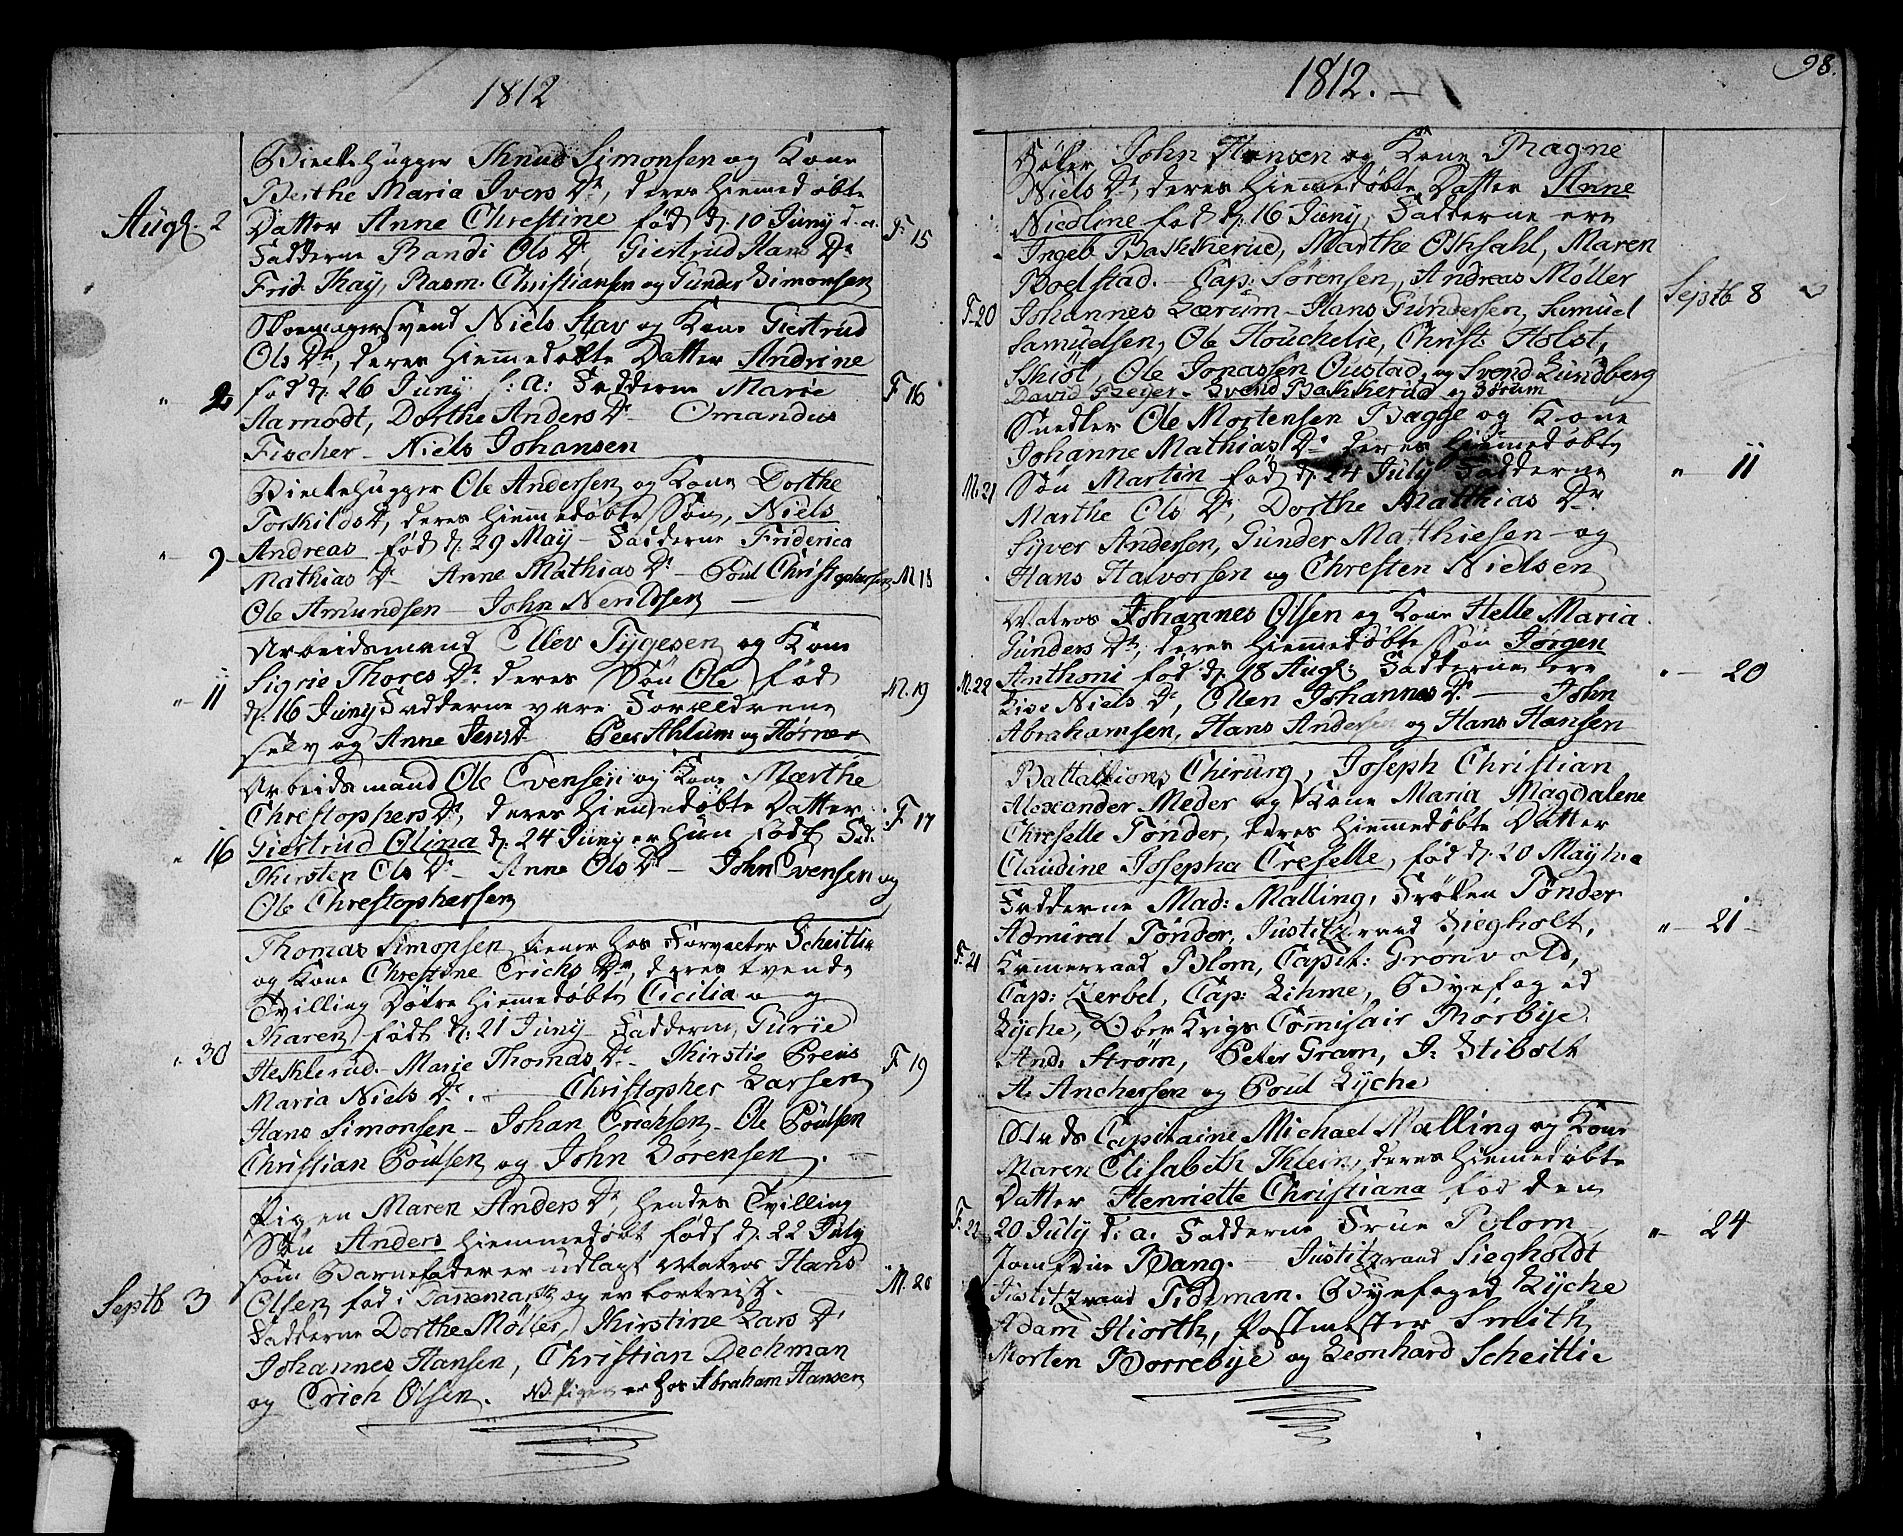 1812
Biælkehugger Knud Simonsen og Kone
Berthe Maria Ivers Dr, deres hiemmedøbte
Augs. 2 Datter Anne Chrestine fød d. 10 Juny d. a. F 15
Fadderne Randi Ols Dr, Giertrud Hans Dr
Frid. Kay, Rasm. Christiansen og Gunder Simonsen
Skomagersvend Niels Slav og Kone Giertrud
Ols Dr, deres hiemmedøbte Datter Andrine
" 2 fød d. 26 Juny s: a: Fadderne Marie F 16
Aamodt, Dorthe Anders Dr Omandus
Fischer - Niels Johansen
Biælkehugger Ole Andersen og Kone Dorthe
Torkilds Dr, deres hiemmedøbte Søn, Niels
" 9 Andreas - fød d. 29 May - Fadderne Friderica
Mathias Dr Anne Mathias Dr - Poul Christophersen M 18
Ole Amundsen - John Nerildsen
Arbeidsmand Ellev Tygesen og Kone
Sigrie Thores Dr deres Søn Ole fød
" 11 d. 16 Juny Fadderne vare Forældrene M. 19
selv og Anne Jens Dr Peer Ahlum og Hørner
Arbeidsmand Ole Evensen og Kone Marthe
Christophers Dr, deres hiemmedøbte Datter F 17
" 16 Giertrud Olina d. 24 Juny er hun født Fad:
Kirsten Ols Dr - Anne Ols Dr - John Evensen og
Ole Chrestophersen
Thomas Simonsen tiener hos Forvalter Scheitlie
og Kone Chrestine Erichs Dr, deres tvende
Tvilling Døtre hiemmedøbte Cicilia og
Karen født d. 21 Juny - Fadderne, Gurie
" 30 Heklerud. Marie Thomas Dr - Kirstie Preus F 19
Maria Niels Dr. - Christopher Larsen
Hans Simonsen - Johan Erichsen - Ole Poulsen
Christian Poulsen og John Sørensen.
Pigen Maren Anders Dr, hendes Tvilling
Søn Anders hiemmedøbt født d. 22 July
som Barnefader er udlagt Matros Hans
Septb 3 Olsen fød i Danemark og er bortreist. M. 20
Fadderne Dorthe Møller, Kirstine Lars Dr
Johannes Hansen, Christian Dechman
og Erich Olsen. NB. Pigen er hos Abraham Hansen
98.
1812.
Bøker John Hansen og Kone Ragne
Niels Dr, deres hiemmedøbte Datter Anne
Nicoline fød d. 16 Juny, Fadderne ere
Ingeb Bakkerud, Marthe Opsahl, Maren
Boelstad. - Cap: Sørensen, Andreas Møller Septb 8
F. 20 Johannes Lærum - Hans Gundersen, Samuel
Samuelsen, Ole Houchelie, Christ: Holst,
Skiøt, Ole Jonassen Oustad, og Svend Lundberg
David Beyer - Svend Bakkerud og Børum
Snedker Ole Mortensen Bagge og Kone
Johanne Mathias Dr deres hiemmedøbte
M. 21 Søn Martin fød d. 24 July Fadderne " 11
Marthe Ols Dr, Dorthe Matthias Dr
Syver Andersen, Gunder Mathiesen - og
Hans Halvorsen og Chresten Nielsen
Matros Johannes Olsen og Kone Helle Maria
Gunders Dr, deres hiemmedøbte Søn Jørgen
M. 22 Anthoni fød d. 18 Augs, Fadderne ere " 20
Lise Niels Dr, Ellen Johannes Dr - John
Abrahamsen, Hans Andersen og Hans Hansen
Battallions Chirurg, Joseph Christian
Alexander Meder og Kone Maria Magdalene
Chreselle Tønder, deres hiemmedøbte Datter
Claudine Josepha Creselle, fød d. 20 May h. a
Fadderne Mad: Malling, Frøken Tønder
Admiral Tønder, Justitzraad Ziegholt, " 21
F. 21 Kammerraad Blom, Capit: Grønvold,
Cap: Zerbel, Cap: Lihme, Byefoged
Lyche, Ober Krigs Commisair Mørbye.
And: Strøm, Peter Gram, J: Stibolt
A. Anchersen og Poul Lyche
Stads Capitaine Michael Malling og Kone
Maren Elisabeth Klein, deres hiemmedøbte
Datter Henriette Christiana fød den
F. 22 20 July d. a. Fadderne Frue Blom - " 24
Jomfrue Bang. - Justitzraad Siegholdt
Justitzraad Tideman. Byefoged Lyche
Adam Hiorth, Postmester Smith
Morten Borrebye og Leonhard Scheitlie